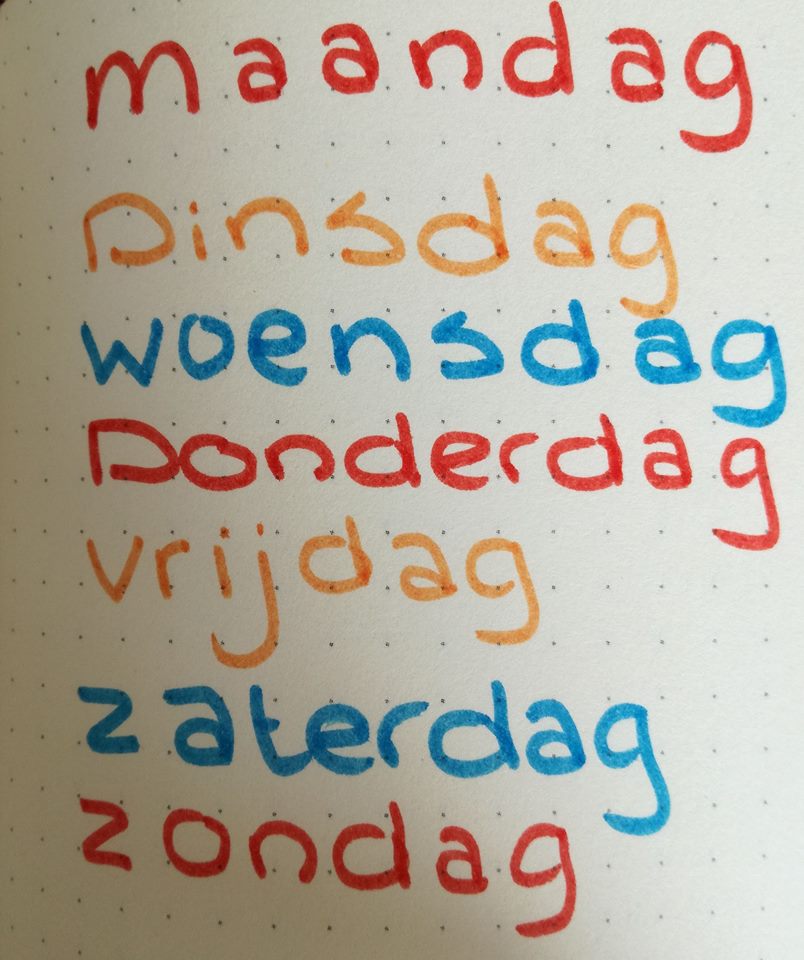 maandag
Dinsdag
woensdag
Donderdag
vrijdag
zaterdag
zondag